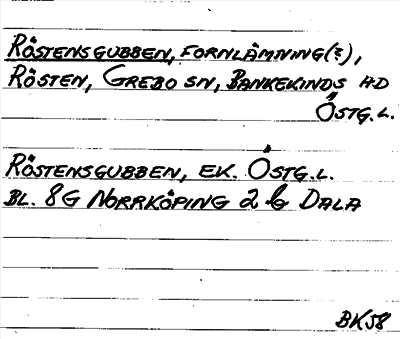 RÖSTENSGUBBEN, FORNLÄMNING(?),
RÖSTEN, GREBO SN, BANKEKINDS HD
ÖSTG.L.
RÖSTENSGUBBEN, EK. ÖSTG.L.
BL. 8G NORRKÖPING 2 b DALA
BK58